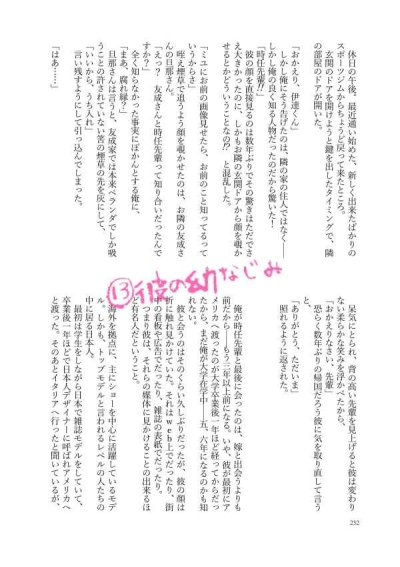 休日の午後、最近通い始めた、新しく出来たばかりの
スポーツジムからちょうど戻って来たところ。
玄関のドアを開けようと鍵を出したタイミングで、隣
の部屋のドアが開いた。
「おかえり、伊達くん」
しかし俺にそう告げたのは、隣の家の住人ではなく――
しかし俺の良く知る人物だったのだから驚いた!
「時任先輩!!」
彼の顔を直接見るのは数年ぶりでその驚きはただでさ
え大きかったのに、しかもお隣の玄関ドアから顔を覗か
せるとかどういうことなの⁉ と混乱した。
「ミユにお前の画像見せたら、お前のこと知ってるって
いうからさ」
咥え煙草で追うよう顔を覗かせたのは、お隣の友成さ
んの旦那さん。
「えっ? 友成さんと時任先輩って知り合いだったんで
すか?」
全く知らなかった事実にぽかんとする俺に、
「まあ、腐れ縁?」
旦那さんは言うと、友成家では本来ベランダでしか吸
うことの許されていない筈の煙草の先を灰にして、
「いいから、うち入れ」
言い残すようにして引っ込んでしまった。
「はあ……」
⑬彼の幼なじみ
呆気にとられ、背の高い先輩を見上げると彼は変わり
ない柔らかな笑みを浮かべたから、
「おかえりなさい、先輩」
と、恐らく数年ぶりの帰国だろう彼に気を取り直して言う
「ありがとう、ただいま」
照れるように返された。
俺が時任先輩と最後に会ったのは、嫁と出会うよりも
前だから――もう三年以上前になる。いや、彼が最初にア
メリカへ渡ったのが大学卒業後一年ほど経ってからだっ
たから、まだ俺が大学在学中――五、六年になるのかも知
れない。
彼と会うのはそのくらい久しぶりだったが、彼の顔は
折に触れ見かけていた。それはweb上でだったり、街
中の看板や広告でだったり、雑誌の表紙でだったり。
つまり彼は、それらの媒体に見かけることの出来るほ
ど有名人だということ。
海外を拠点に、主にショーを中心に活躍しているモデ
ル。しかも、トップモデルと言われるレベルの人たちの
中に居る日本人。
最初は学生をしながら日本で雑誌モデルをしていて、
卒業後一年ほどで日本人デザイナーに呼ばれアメリカへ
と渡った。そのあとイタリアへ行ったと聞いているが、
232